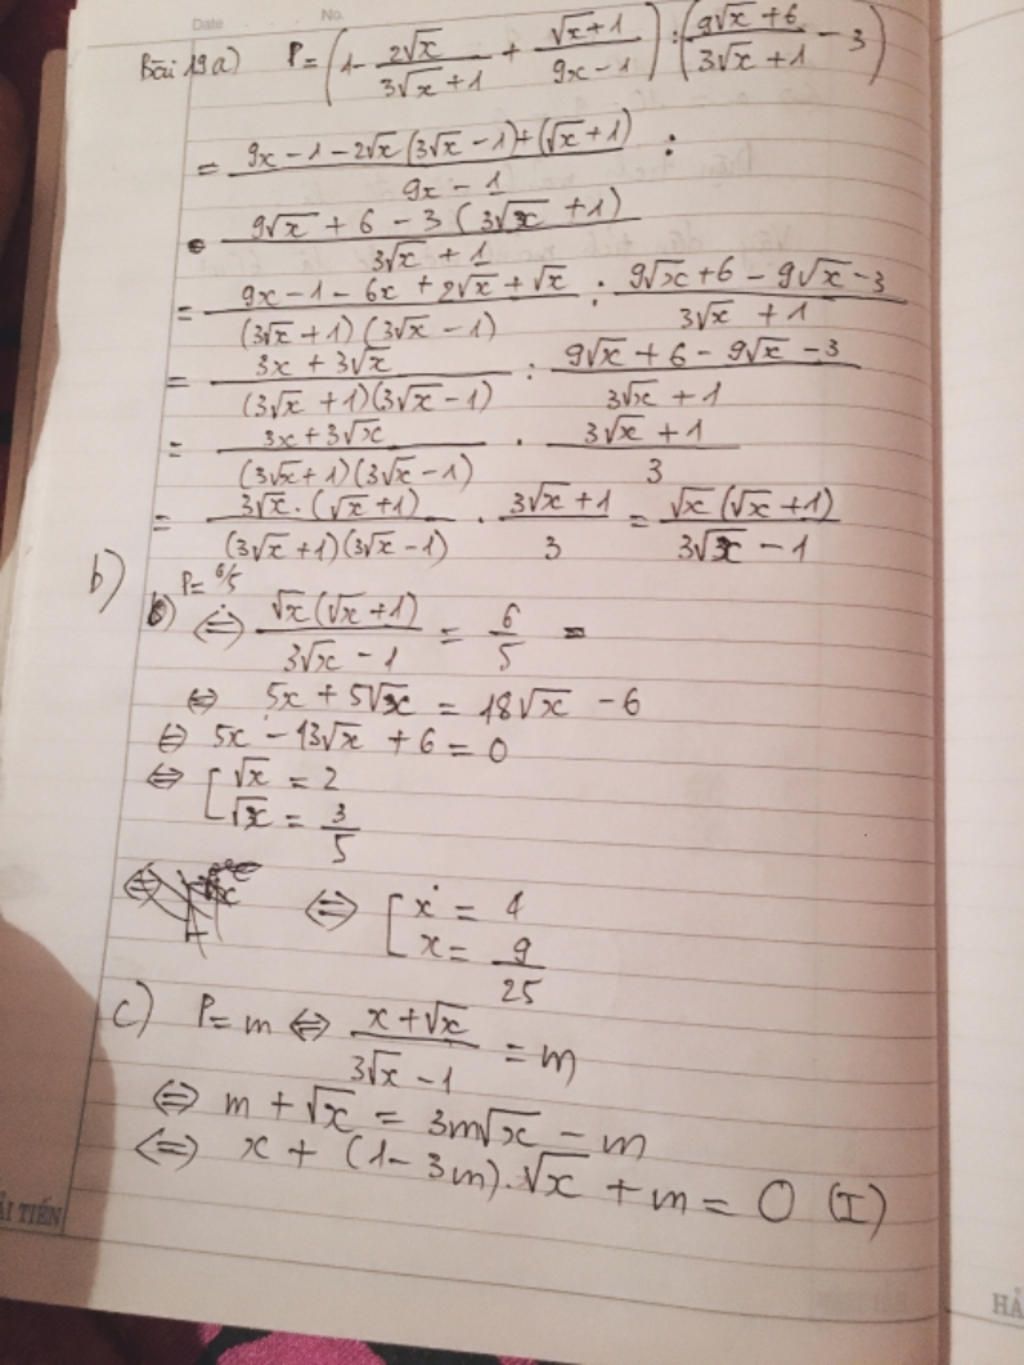 Date No.
Bài 19a) P = (1 - 2√x/(3√x + 1) + (√x + 1)/(9x - 1)) : ((9√x + 6)/(3√x + 1) - 3)
= (9x - 1 - 2√x (3√x - 1) + (√x + 1))/(9x - 1) :
(9√x + 6 - 3 (3√x + 1))/(3√x + 1)
= (9x - 1 - 6x + 2√x + √x)/((3√x + 1)(3√x - 1)) : (9√x + 6 - 9√x - 3)/(3√x + 1)
= (3x + 3√x)/((3√x + 1)(3√x - 1)) : (9√x + 6 - 9√x - 3)/(3√x + 1)
= (3x + 3√x)/((3√x + 1)(3√x - 1)) . (3√x + 1)/3
= (3√x . (√x + 1))/((3√x + 1)(3√x - 1)) . (3√x + 1)/3 = (√x (√x + 1))/(3√x - 1)
b) P = 6/5
b) ⇔ (√x (√x + 1))/(3√x - 1) = 6/5
⇔ 5x + 5√x = 18√x - 6
⇔ 5x - 13√x + 6 = 0
⇔ [ √x = 2
√x = 3/5
⇔ [ x = 4
x = 9/25
c) P = m ⇔ (x + √x)/(3√x - 1) = m
⇔ m + √x = 3m√x - m
⇔ x + (1 - 3m).√x + m = 0 (I)
ẢI TIẾN
HẢ